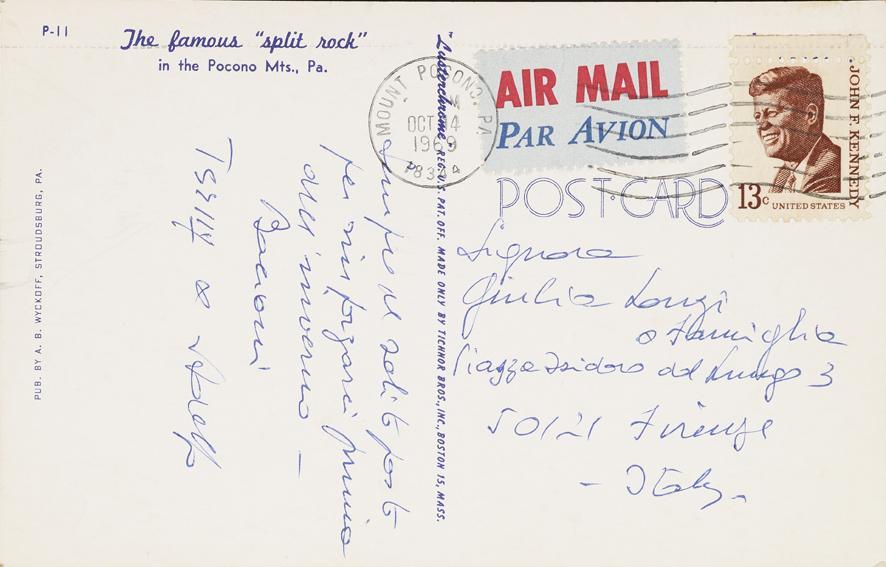 P-11
The famous "split rock"
in the Pocono Mts., Pa.
PUB. BY A. B. WYCKOFF, STROUDSBURG, PA.
"Lusterchrome" REG. U.S. PAT. OFF. MADE ONLY BY TICHNOR BROS., INC., BOSTON 15, MASS.
MOUNT POCONO, PA
OCT 14
1969
AIR MAIL
PAR AVION
JOHN F. KENNEDY
13c UNITED STATES
POST CARD
Sempre al solito posto
per rinforzarci prima
dell'inverno —
Bacioni
Signora
Giulia
e Famiglia
Piazza Isidoro del Lungo 3
50121 Firenze
- Italy -